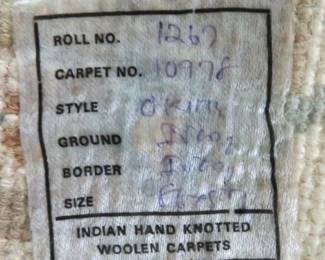 ROLL NO. 1267
CARPET NO. 10978
STYLE
GROUND
BORDER
SIZE
INDIAN HAND KNOTTED
WOOLEN CARPETS